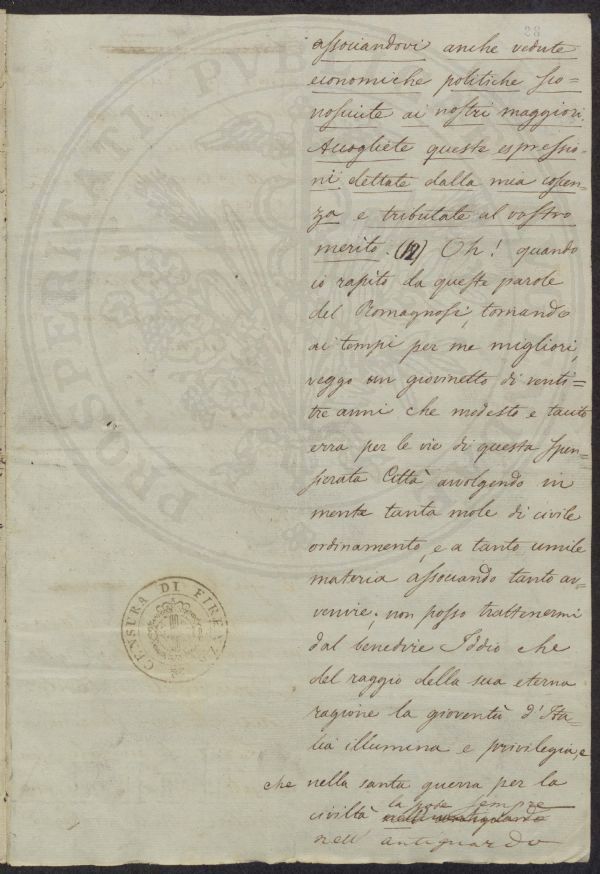 88
associandovi anche vedute
economiche politiche sco=
nosciute ai nostri maggiori.
Accogliete queste espressio-
ni dettate dalla mia coscen-
za e tributate al vostro
merito. (12) Oh! quando
io rapito da queste parole
del Romagnosi, tornando
ai tempi per me migliori,
veggo un giovinetto di venti=
tre anni che modesto e tacito
erra per le vie di questa spen-
sierata Città avvolgendo in
mente tanta mole di civile
ordinamento, e a tanto umile
materia associando tanto av-
venire; non posso trattenermi
dal benedire Iddio che
del raggio della sua eterna
ragione la gioventù d'Ita-
lia illumina e privilegia, e
che nella santa guerra per la
civiltà la pose sempre
nell'antiguardo
PROSPERITATI PVB
CENSURA DI FIRENZE